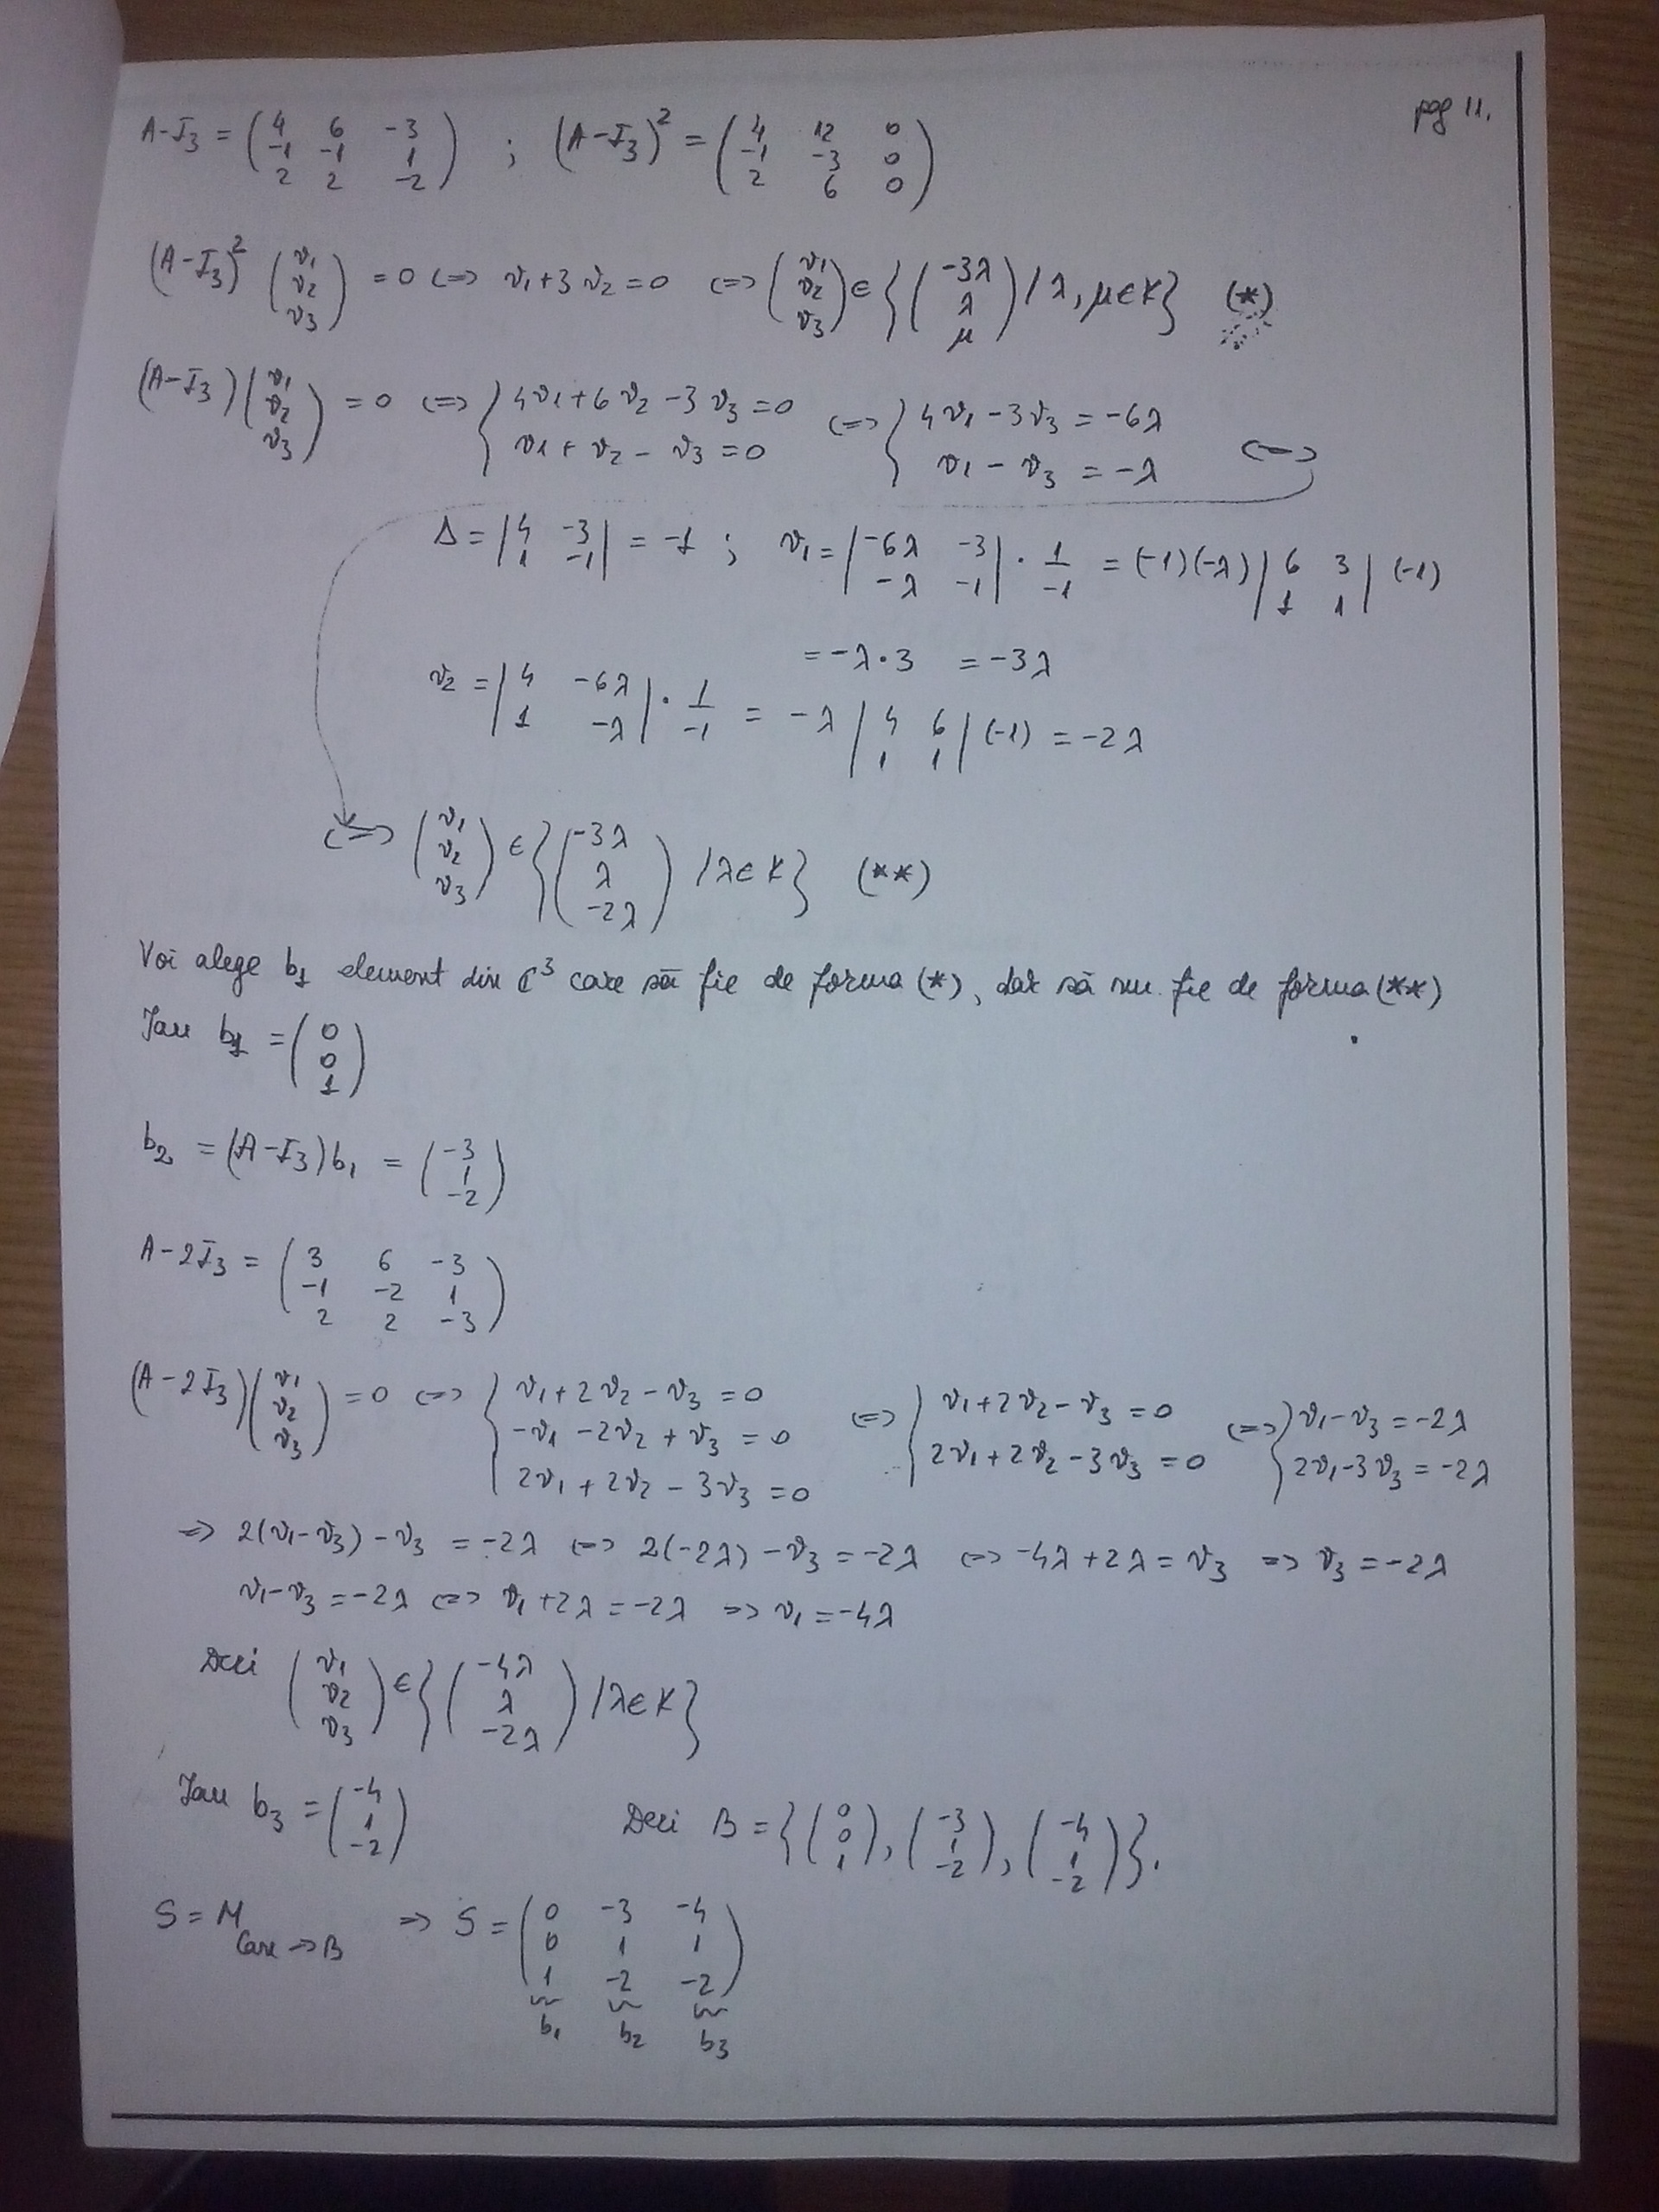 pag 11.
A-I₃ = (4 6 -3; -1 -1 1; 2 2 -2) ; (A-I₃)² = (4 12 0; -1 -3 0; 2 6 0)
(A-I₃)² (v₁; v₂; v₃) = 0 <=> v₁+3v₂=0 <=> (v₁; v₂; v₃) ∈ {(-3λ; λ; μ) / λ, μ∈K} (*)
(A-I₃)(v₁; v₂; v₃) = 0 <=> { 4v₁+6v₂-3v₃=0; v₁+v₂-v₃=0 <=> { 4v₁-3v₃=-6λ; v₁-v₃=-λ <=>
Δ = |4 -3; 1 -1| = -1 ; v₁ = |-6λ -3; -λ -1| · 1/-1 = (-1)(-λ)|6 3; 1 1|(-1)
= -λ·3 = -3λ
v₂ = |4 -6λ; 1 -λ| · 1/-1 = -λ|4 6; 1 1|(-1) = -2λ
<=> (v₁; v₂; v₃) ∈ {(-3λ; λ; -2λ) / λ∈K} (**)
Voi alege b₁ element din ℂ³ care să fie de forma (*), dar să nu fie de forma (**)
Iau b₁ = (0; 0; 1)
b₂ = (A-I₃)b₁ = (-3; 1; -2)
A-2I₃ = (3 6 -3; -1 -2 1; 2 2 -3)
(A-2I₃)(v₁; v₂; v₃) = 0 <=> { v₁+2v₂-v₃=0; -v₁-2v₂+v₃=0; 2v₁+2v₂-3v₃=0 <=> { v₁+2v₂-v₃=0; 2v₁+2v₂-3v₃=0 <=> { v₁-v₃=-2λ; 2v₁-3v₃=-2λ
=> 2(v₁-v₃)-v₃ = -2λ <=> 2(-2λ)-v₃=-2λ <=> -4λ+2λ=v₃ => v₃=-2λ
v₁-v₃=-2λ <=> v₁+2λ=-2λ => v₁=-4λ
Deci (v₁; v₂; v₃) ∈ {(-4λ; λ; -2λ) / λ∈K}
Iau b₃ = (-4; 1; -2) Deci B = {(0; 0; 1), (-3; 1; -2), (-4; 1; -2)}.
S = M Can→B => S = (0 -3 -4; 0 1 1; 1 -2 -2)
b₁ b₂ b₃